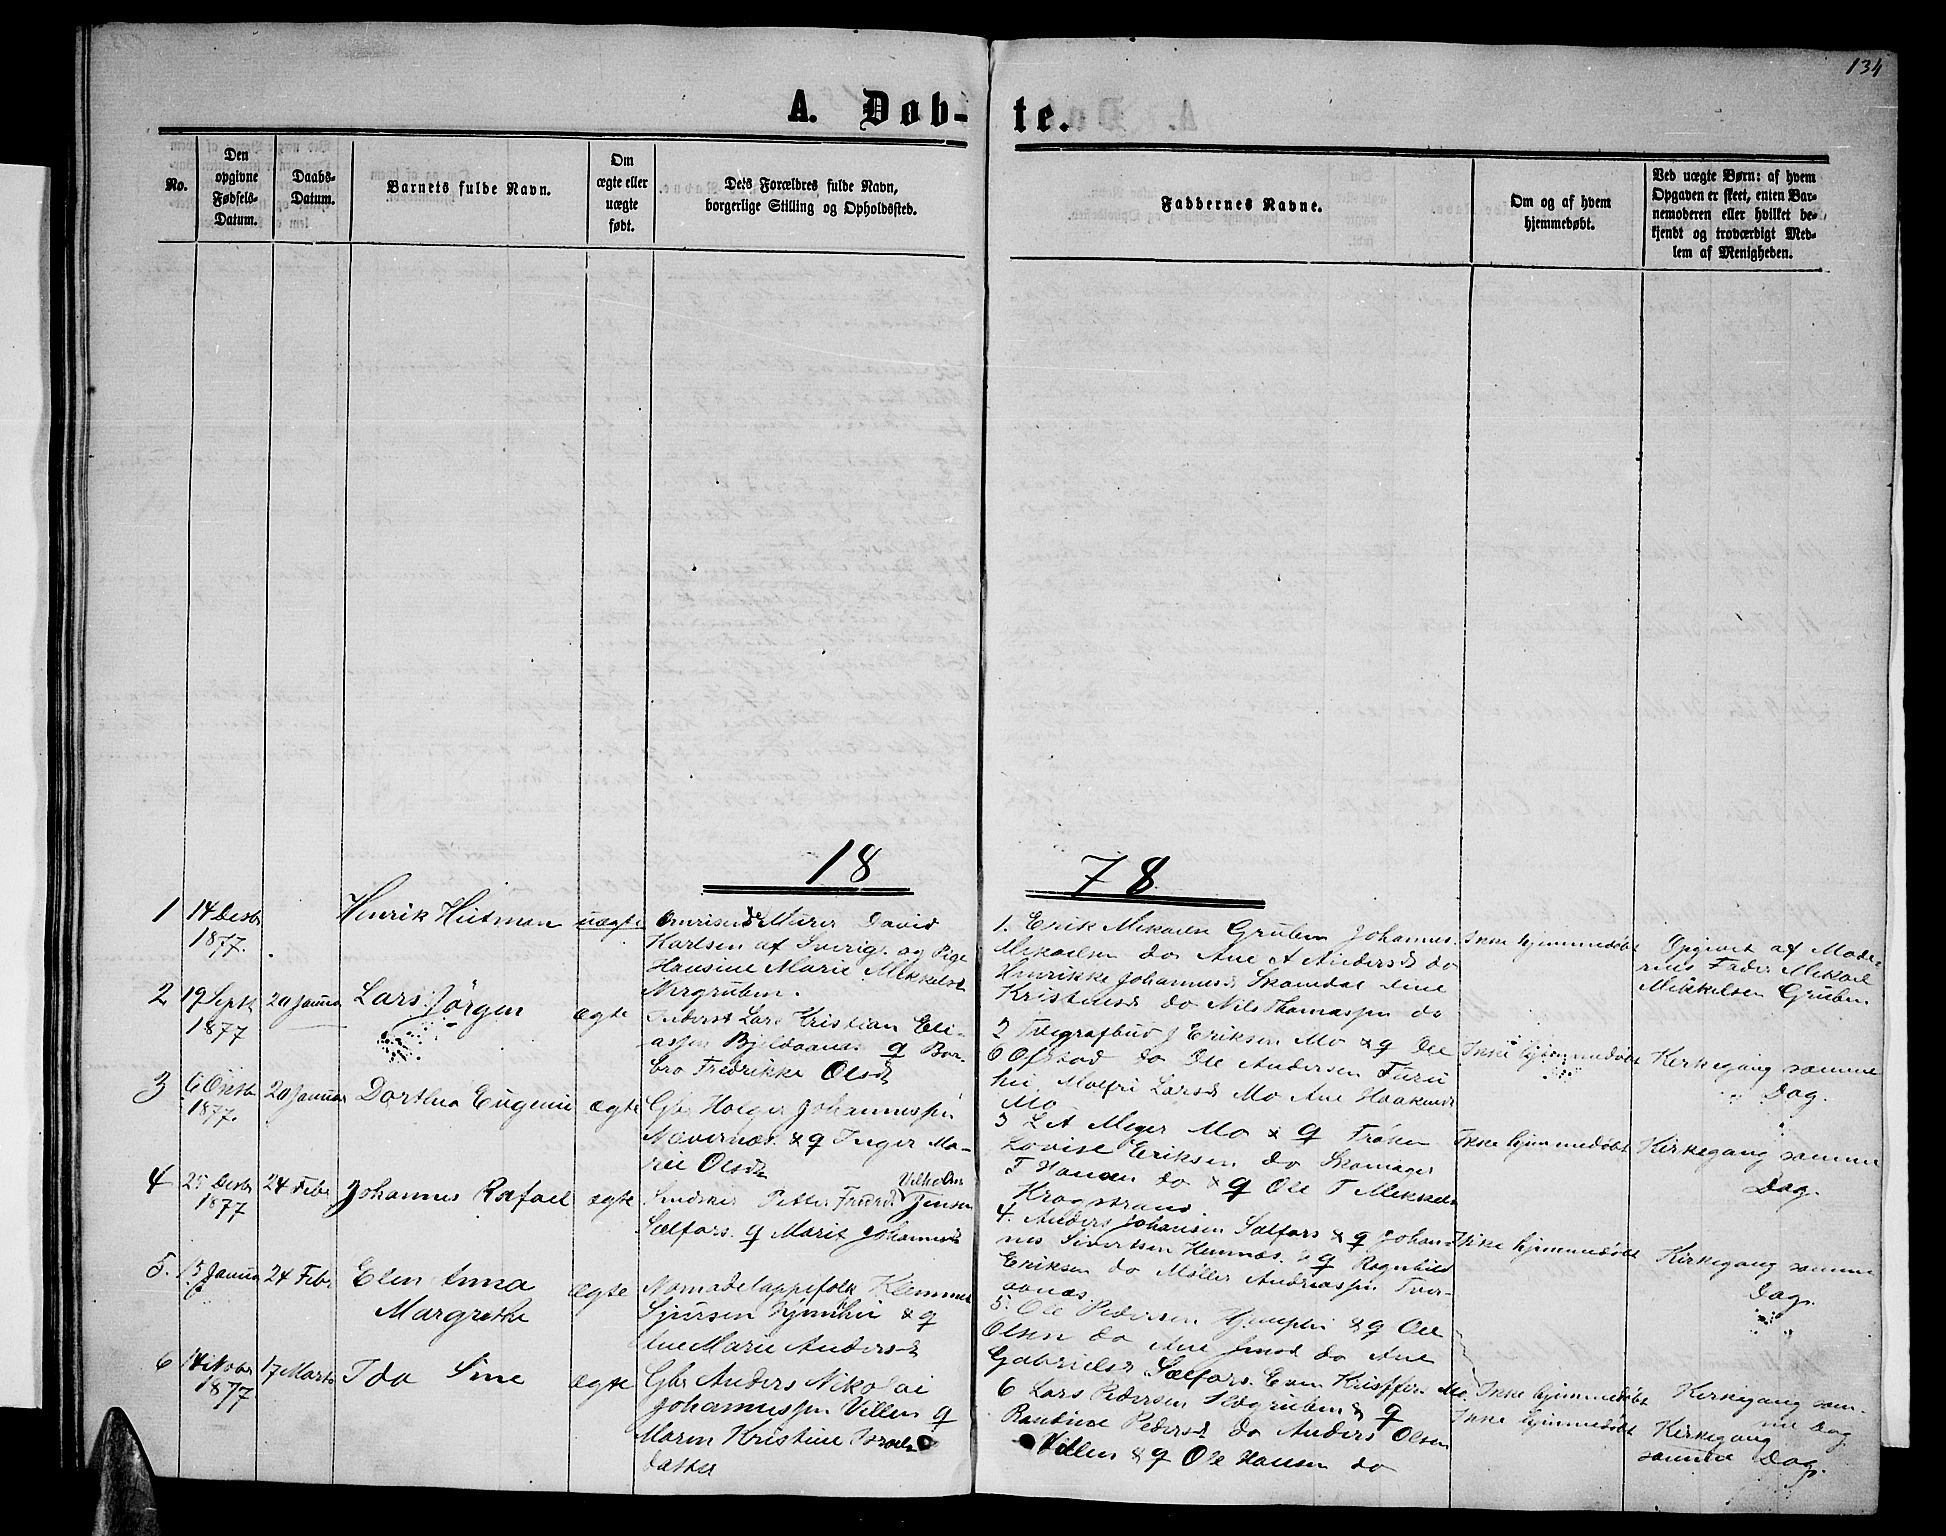 134
A. Døb-
te.
No.
Den opgivne Fødsels-Datum.
Daabs-Datum.
Barnets fulde Navn.
Om ægte eller uægte født.
Dets Forældres fulde Navn, borgerlige Stilling og Opholdssted.
Faddernes Navne.
Om og af hvem hjemmedøbt.
Ved uægte Børn: af hvem Opgaven er skeet, enten Barnemoderen eller hvilket bekjendt og troværdigt Medlem af Menigheden.
18
78
1
14 Desbr
1877.
Henrik
uægte
Murer David
Karlsen af Sverig. og Pige
Hansine Marie Mikkelsd
1. Erik Mikaelsen Gruben Johannes
Mikaelsen do Ane A Andersd do
Henrikke Johannesd Skamdal
Kristensd do Nils Thomassen do
Ikke hjemmedøbt
Opgivet af Mode-
rens Fader Mikael
Mikkelsen Gruben
2
19 Septb
1877
20 Janua
Lars Jørgen
ægte
Inderst Lars Kristian Eli-
assen Bjeldaanes q Bar-
bro Fredrikke Olsdt
2 Telegrafbud J Eriksen Mo & q Ole
Ofstad do Ole Andersen
Larsd Mo Ane Haakensd
Mo
Ikke hjemmedøbt
Kirkegang samme
Dag.
3
6 Oktb
1877.
20 Januar
Dorthea Eugenie
ægte
Gbr Holger Johannessen
Nævernæs. & q Inger Ma-
rie Olsdt
3 L A Meyer Mo & q Frøken
Lovise Eriksen do Skomager
T Hansen do & q Ole T Mikkels
Ikke hjemmedøbt
Kirkegang samme
Dag.
4
25 Desbr
1877
24 Febr
Johannes Rafael
ægte
Petter Fredrik Vilhelm Jensen
q Marit Johannesd
4. Anders Johansen & q Johan-
nes Sivertsen Hemnæs. & q Ragnhild
Eriksen do Møller Andreassen Tver-
aanes
Ikke hjemmedøbt
Kirkegang samme
Dag.
5.
15 Janua
24 Febr
Elen Anna
Margrethe
ægte
Nomadelappefolk Klemmet
Sjursen & q
Ane Marie Andersd
5. Ole Pedersen & q Ole
Olsen do Ane do Ane
Gabrielsd
Ikke hjemmedøbt
Kirkegang sam-
me Dag
6
14 Novbr
1877
17 Marts
Ida Sine
ægte
Gbr Anders Nikolai
Johannessen Villen q
Maren Kristine Israels
datter
6 Lars Pedersen & q
Pedersd do Anders Olsen
Villen & q Ole Hansen do
Ikke hjemmedøbt
Kirkegang
samme Dag.